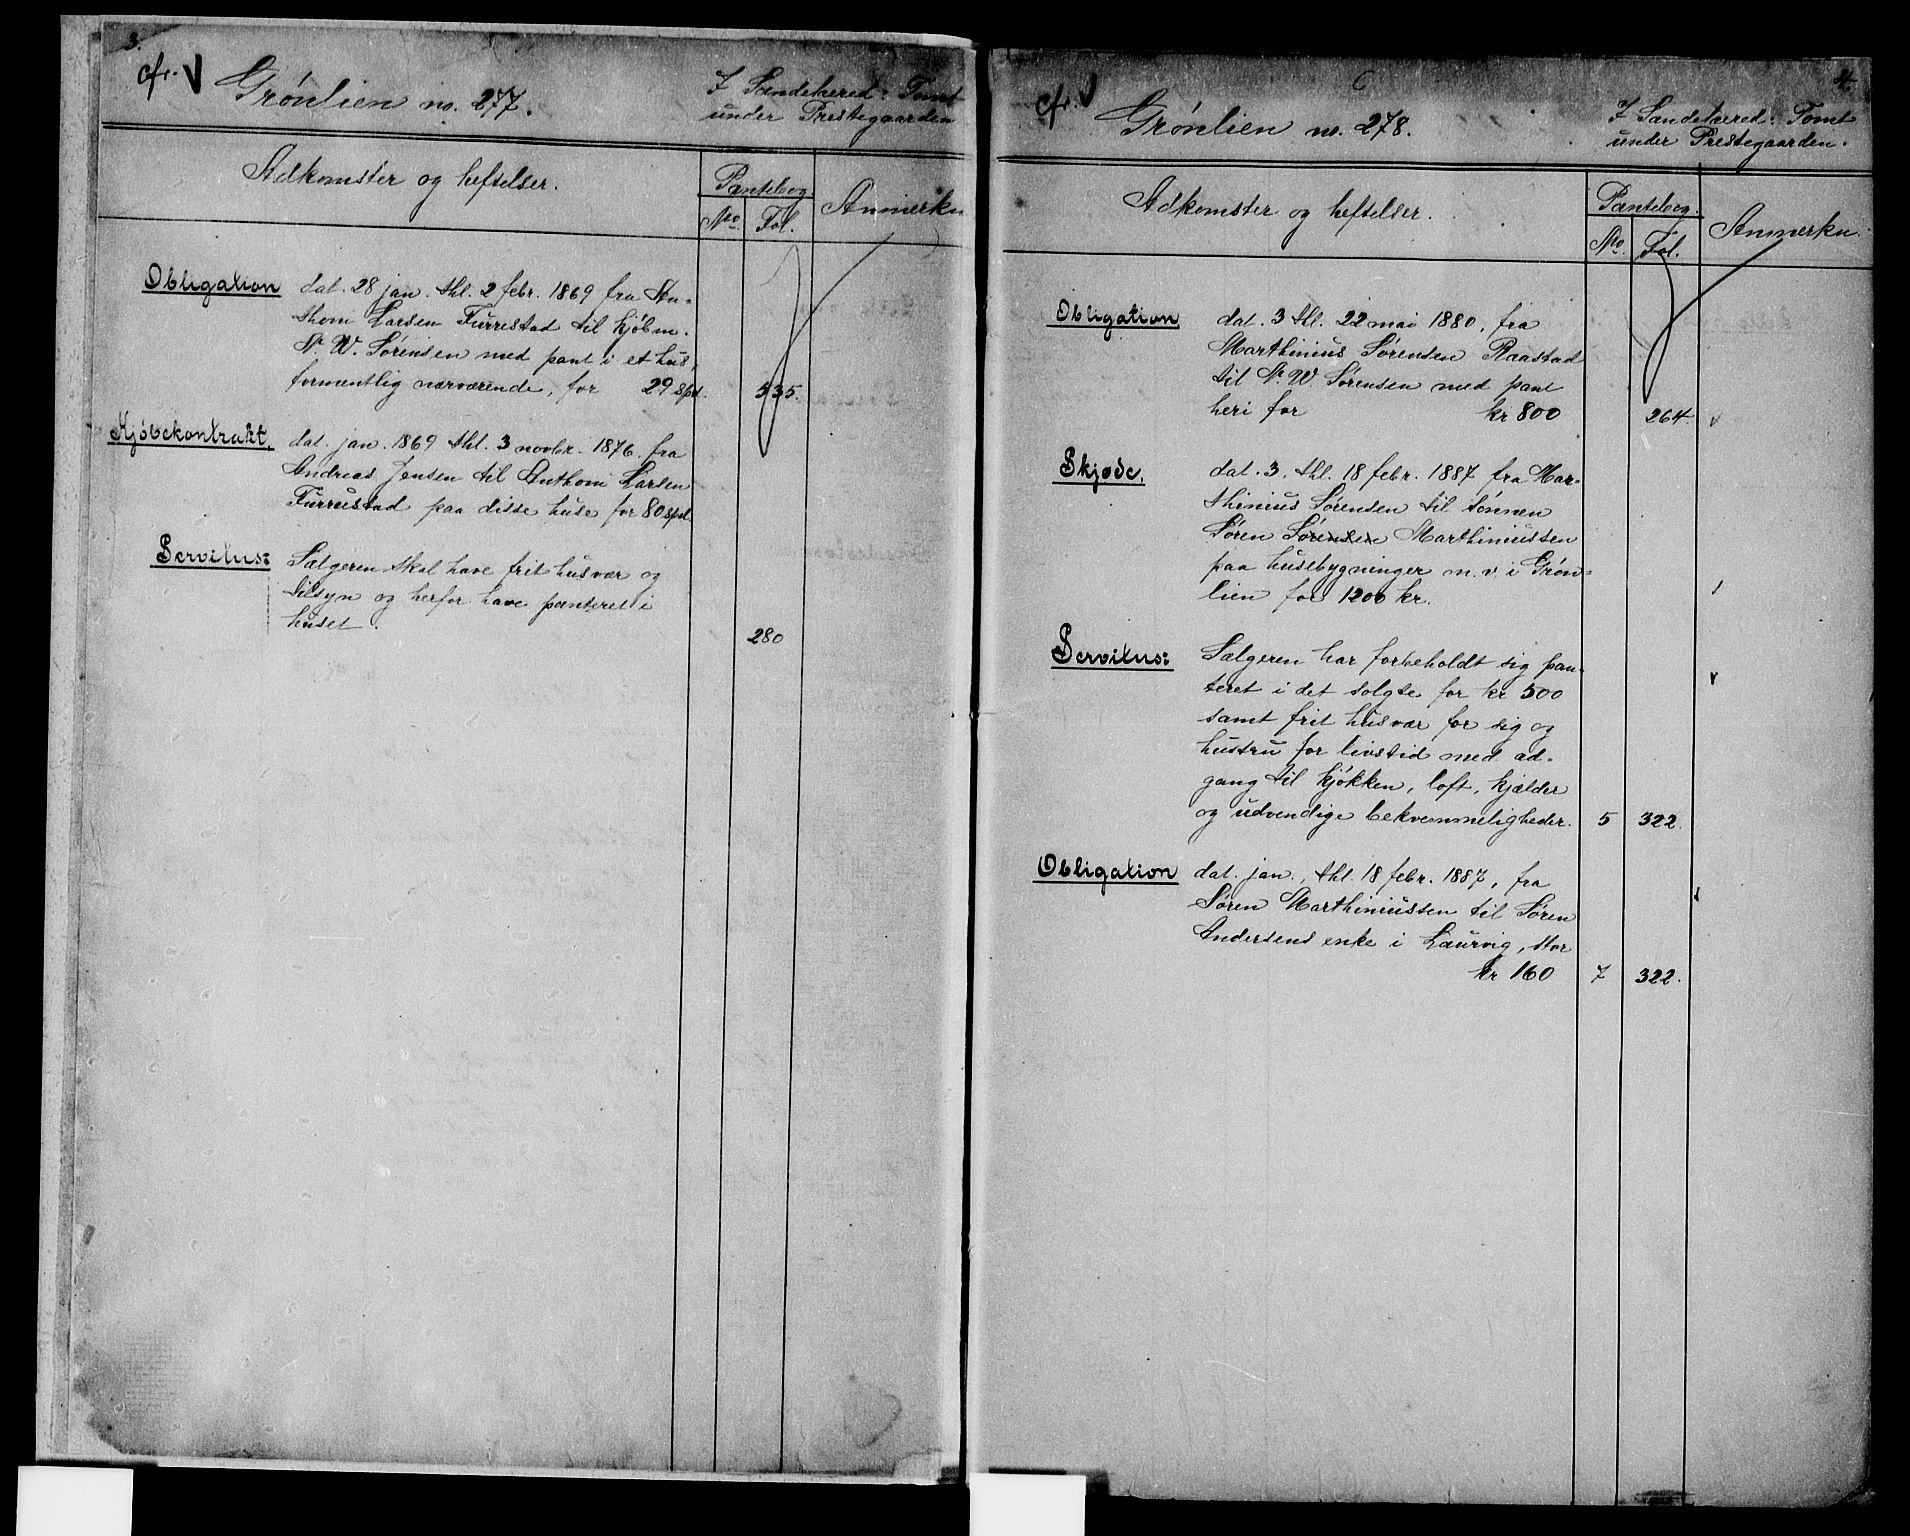 3.
cfr. V
Grønlien no. 277.
I Sandehered: Tomt
under Prestegaarden
Adkomster og heftelser.
Pantebog.
No. Fol.
Anmerkn
Obligation dat. 28 jan. thl. 2 febr. 1869 fra An-
thoni Larsen Furrestad til kjøbm.
N. W. Sørensen med pant i et hus,
formentlig nærværende, for 29 spd. 535.
Kjøbekontrakt, dat. jan. 1869 thl. 3 novbr. 1876 fra
Andreas Jensen til Anthoni Larsen
Furrustad paa disse huse for 80 spd.
Servitus: Sælgeren skal have frit husvær og
tilsyn og herfor have panteret i
huset. 280
4.
cfr. V
Grønlien no. 278.
I Sandehered: Tomt
under Prestegaarden.
Adkomster og heftelser.
Pantebog.
No. Fol.
Anmerkn.
Obligation dat. 3 thl. 22 mai 1880, fra
Marthinius Sørensen Raastad
til N. W Sørensen med pant
heri for kr 800 264.
Skjøde. dat. 3. thl. 18 febr. 1887 fra Mar-
thinius Sørensen til sønnen
Søren Sørensen Marthiniussen
paa husebygninger m. v. i Grøn-
lien for 1200 kr.
Servitus: Sælgeren har forbeholdt sig pan-
teret i det solgte for kr 500
samt frit husvær for sig og
hustru for livstid med ad-
gang til kjøkken, loft, kjælder
og udvendige bekvemmeligheder. 5 322.
Obligation dat. jan., thl. 18 febr. 1887, fra
Søren Marthiniussen til Søren
Andersens enke i Laurvig, stor
kr 160 7 322.